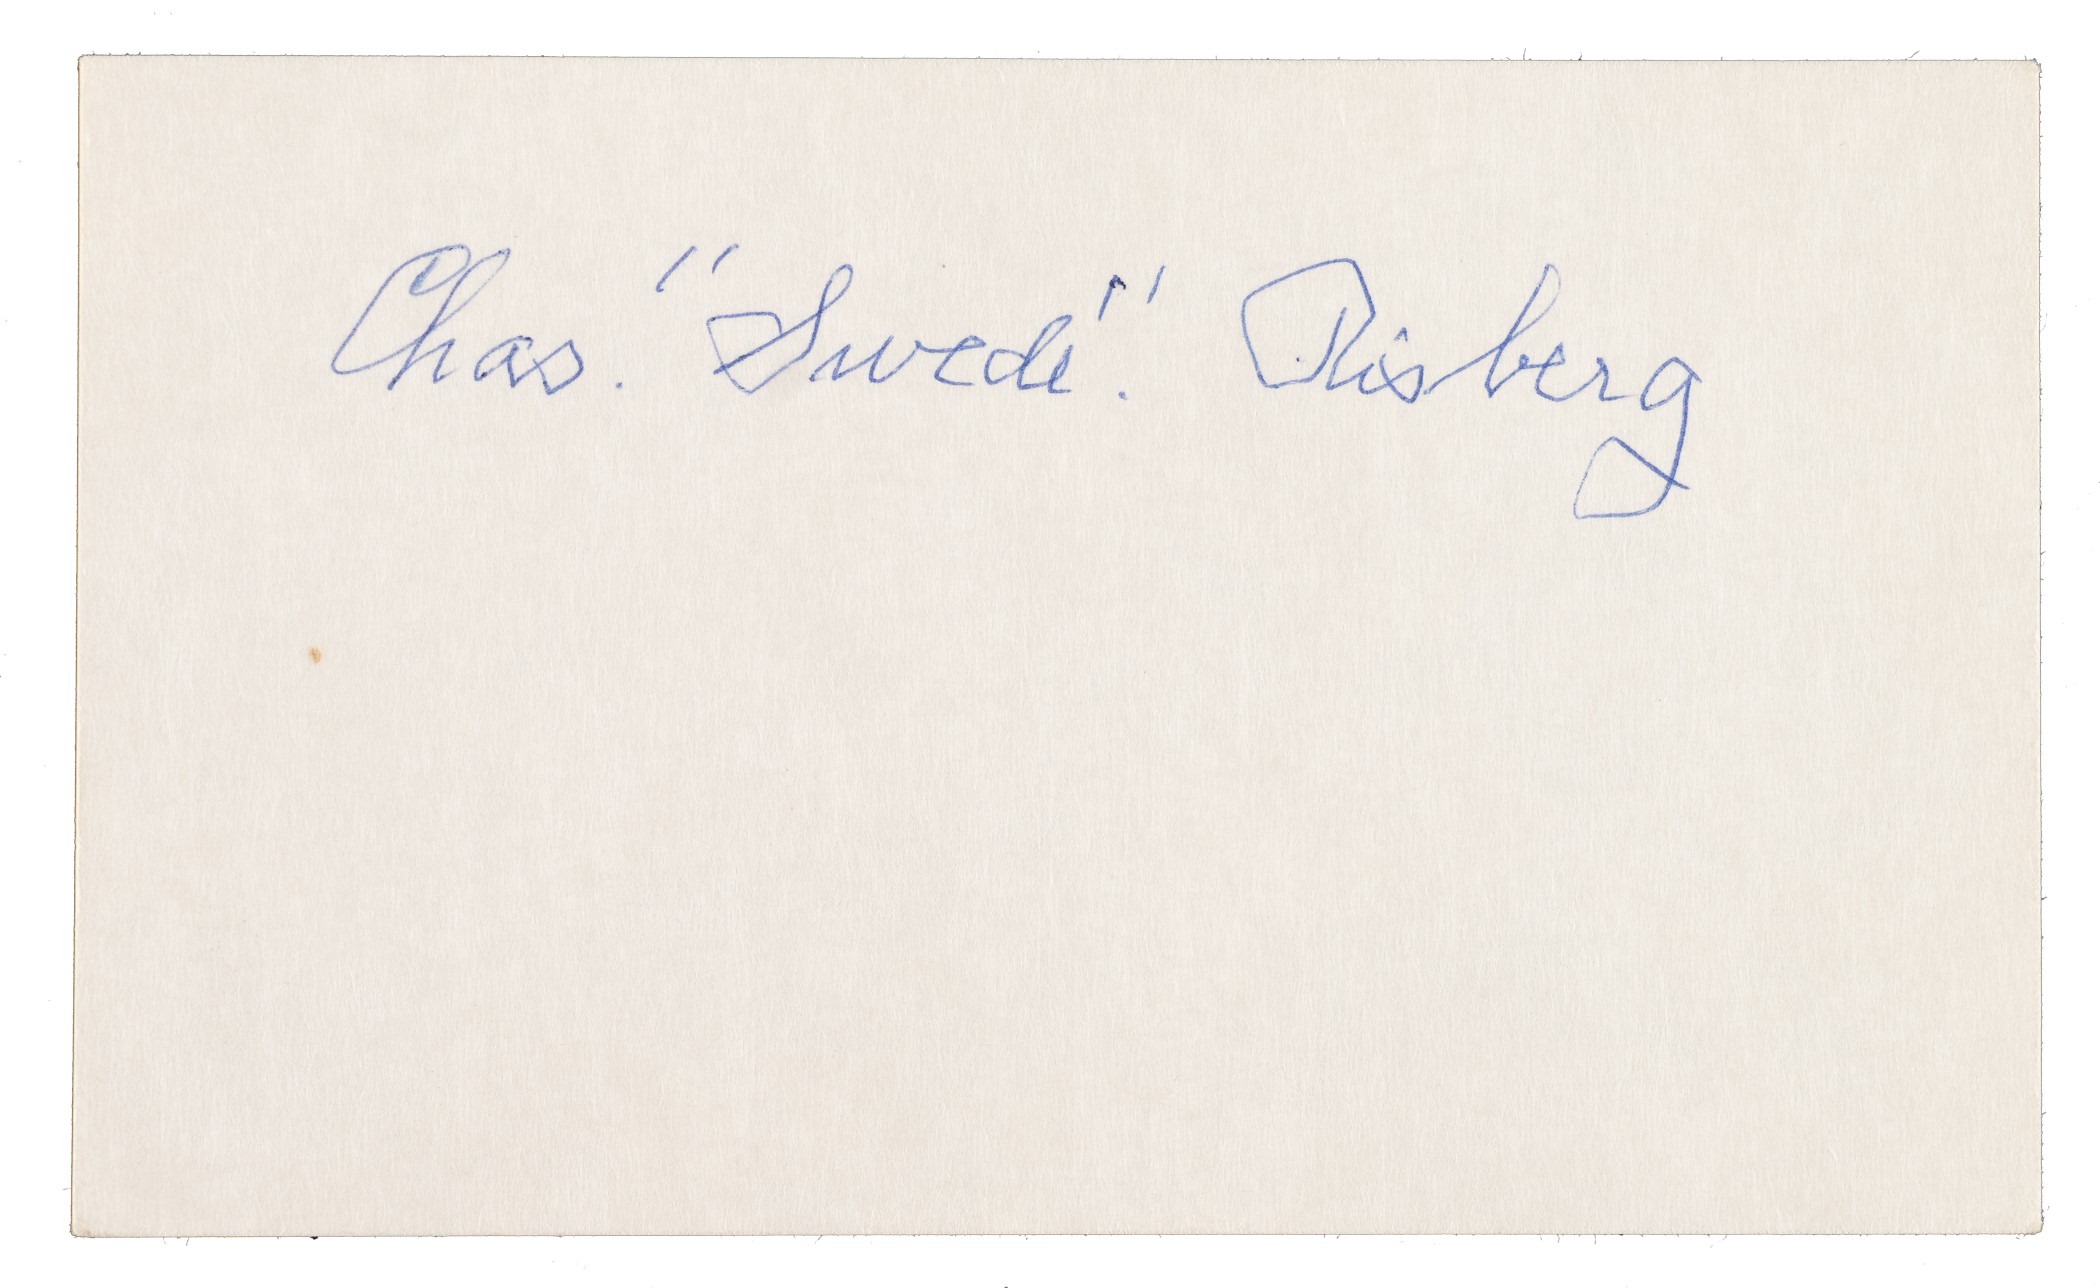 Chas. "Swede". Risberg